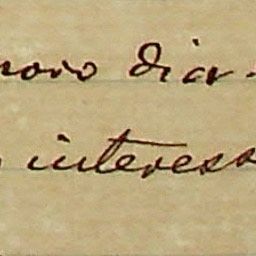 novo dia-
interess